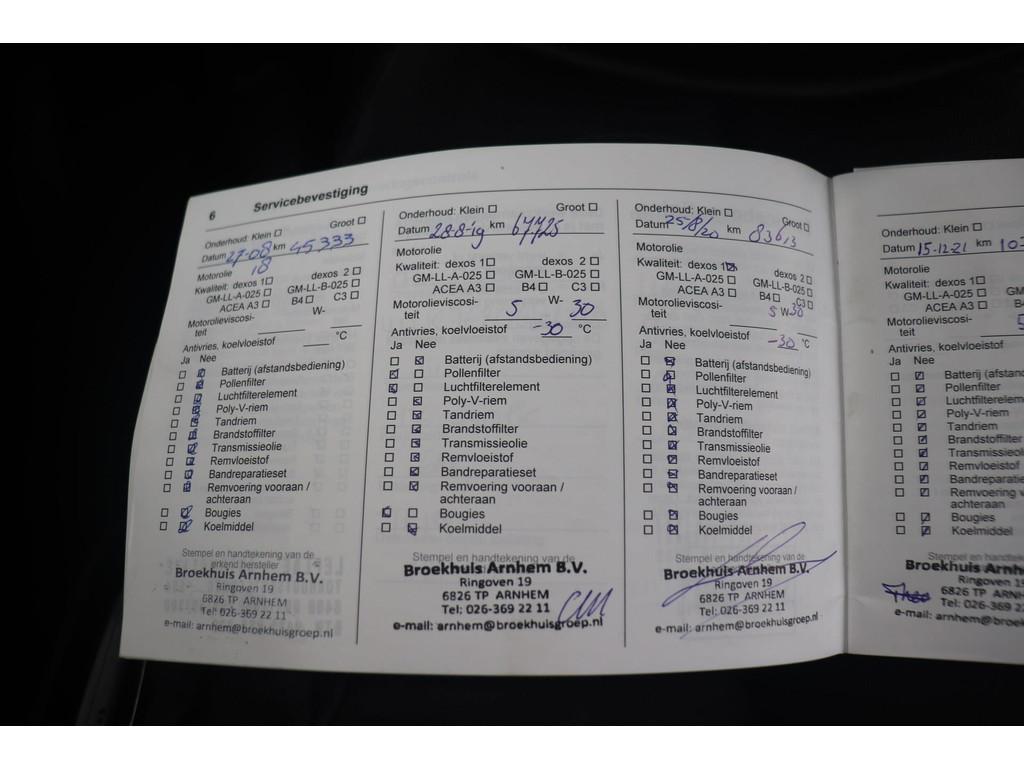 6 Servicebevestiging
Onderhoud: Klein ☐ Groot ☐
Datum 27-08 km 45333
18
Motorolie
Kwaliteit: dexos 1 ☐ dexos 2 ☐
GM-LL-A-025 ☐ GM-LL-B-025 ☐
ACEA A3 ☐ B4 ☐ C3 ☐
Motorolieviscosi- W-
teit
Antivries, koelvloeistof °C
Ja Nee
☐ ☑ Batterij (afstandsbediening)
☐ ☑ Pollenfilter
☐ ☑ Luchtfilterelement
☐ ☑ Poly-V-riem
☐ ☑ Tandriem
☐ ☑ Brandstoffilter
☐ ☑ Transmissieolie
☐ ☑ Remvloeistof
☐ ☑ Bandreparatieset
☐ ☑ Remvoering vooraan /
achteraan
☐ ☑ Bougies
☐ ☑ Koelmiddel
Stempel en handtekening van de
erkend hersteller
Broekhuis Arnhem B.V.
Ringoven 19
6826 TP ARNHEM
Tel: 026-369 22 11
e-mail: arnhem@broekhuisgroep.nl
Onderhoud: Klein ☐ Groot ☐
Datum 28-8-19 km 67725
Motorolie
Kwaliteit: dexos 1 ☐ dexos 2 ☐
GM-LL-A-025 ☐ GM-LL-B-025 ☐
ACEA A3 ☐ B4 ☐ C3 ☐
Motorolieviscosi- 5 W- 30
teit
Antivries, koelvloeistof -30 °C
Ja Nee
☐ ☑ Batterij (afstandsbediening)
☑ ☐ Pollenfilter
☑ ☐ Luchtfilterelement
☐ ☑ Poly-V-riem
☐ ☑ Tandriem
☐ ☑ Brandstoffilter
☐ ☑ Transmissieolie
☐ ☑ Remvloeistof
☐ ☑ Bandreparatieset
☐ ☑ Remvoering vooraan /
achteraan
☑ ☐ Bougies
☐ ☑ Koelmiddel
Stempel en handtekening van de
Broekhuis Arnhem B.V.
Ringoven 19
6826 TP ARNHEM
Tel: 026-369 22 11
e-mail: arnhem@broekhuisgroep.nl
Onderhoud: Klein ☐ Groot ☐
Datum 25/8/20 km 83613
Motorolie
Kwaliteit: dexos 1 ☑ dexos 2 ☐
GM-LL-A-025 ☐ GM-LL-B-025 ☐
ACEA A3 ☐ B4 ☐ C3 ☐
Motorolieviscosi- 5 W-30
teit
Antivries, koelvloeistof -30 °C
Ja Nee
☐ ☑ Batterij (afstandsbediening)
☐ ☑ Pollenfilter
☐ ☑ Luchtfilterelement
☐ ☑ Poly-V-riem
☐ ☑ Tandriem
☐ ☑ Brandstoffilter
☐ ☑ Transmissieolie
☐ ☑ Remvloeistof
☐ ☑ Bandreparatieset
☐ ☑ Remvoering vooraan /
achteraan
☐ ☑ Bougies
☐ ☑ Koelmiddel
Stempel en handtekening van de
Broekhuis Arnhem B.V.
Ringoven 19
6826 TP ARNHEM
Tel: 026-369 22 11
e-mail: arnhem@broekhuisgroep.nl
Onderhoud: Klein ☐
Datum 15-12-21 km 107
Motorolie
Kwaliteit: dexos 1 ☐
GM-LL-A-025 ☐ GM
ACEA A3 ☐ B4
Motorolieviscosi-
teit
Antivries, koelvloeistof
Ja Nee
☐ ☑ Batterij (afstand
☐ ☑ Pollenfilter
☐ ☑ Luchtfiltereleme
☐ ☑ Poly-V-riem
☐ ☑ Tandriem
☐ ☑ Brandstoffilter
☐ ☑ Transmissieoli
☐ ☑ Remvloeistof
☐ ☑ Bandreparatie
☐ ☑ Remvoering v
achteraan
☐ ☑ Bougies
☐ ☑ Koelmiddel
Stempel en handtek
Broekhuis Arnh
Ringoven 19
6826 TP AR
Tel: 026-369 2
e-mail: arnhem@bro